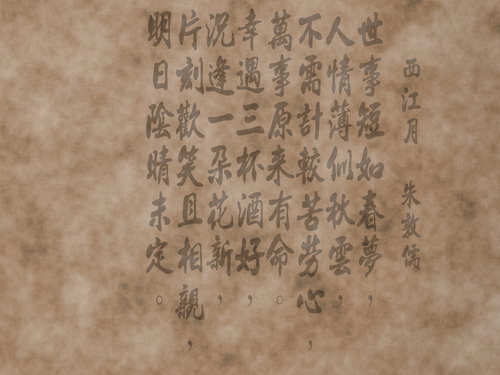 西江月 朱敦儒
世事短如春夢，
人情薄似秋雲，
不需計較苦勞心，
萬事原来有命。
幸遇三杯酒好，
況逢一朵花新，
片刻歡笑且相親，
明日陰晴未定。